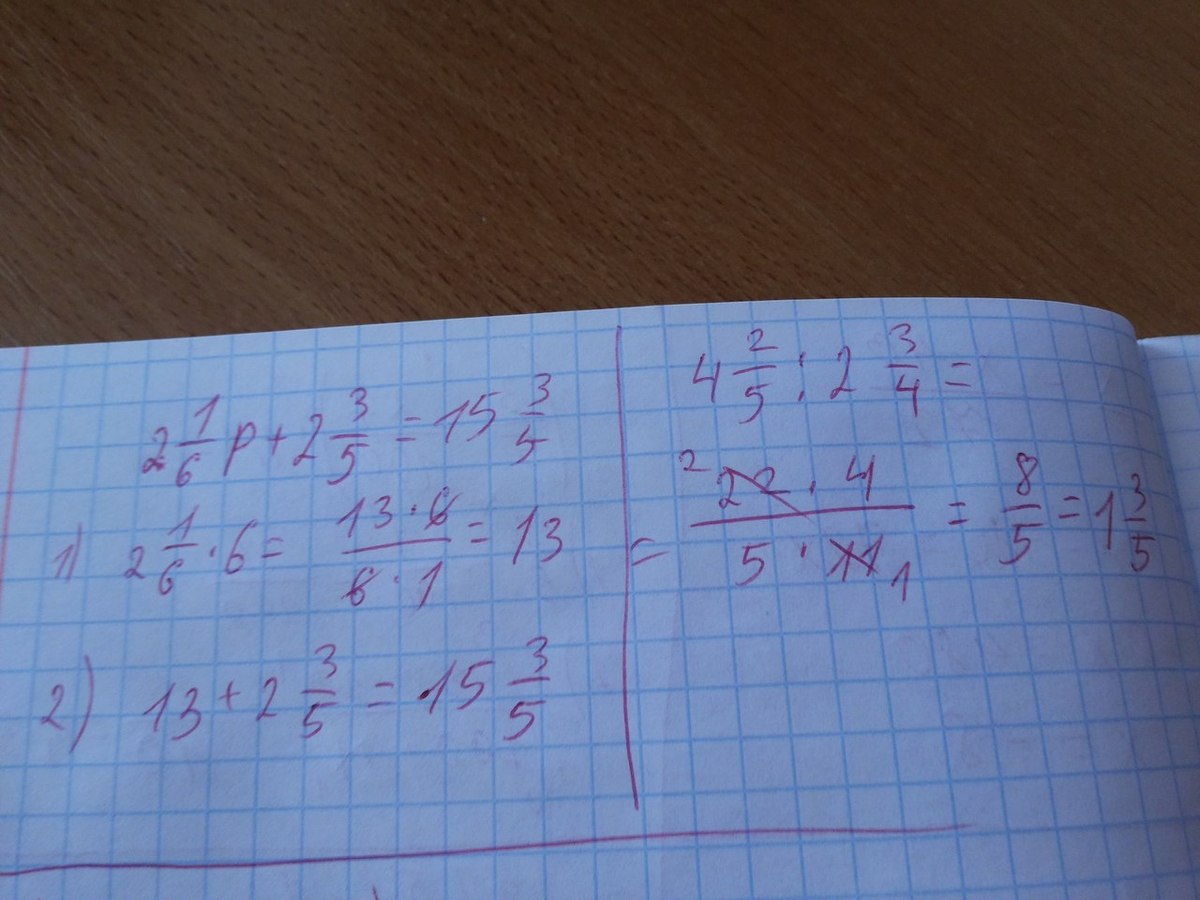 2 1/6 p + 2 3/5 = 15 3/5
1) 2 1/6 · 6 = 13 · 6 / 6 · 1 = 13
2) 13 + 2 3/5 = 15 3/5
4 2/5 : 2 3/4 =
= 2 22 · 4 / 5 · 11 1 = 8/5 = 1 3/5